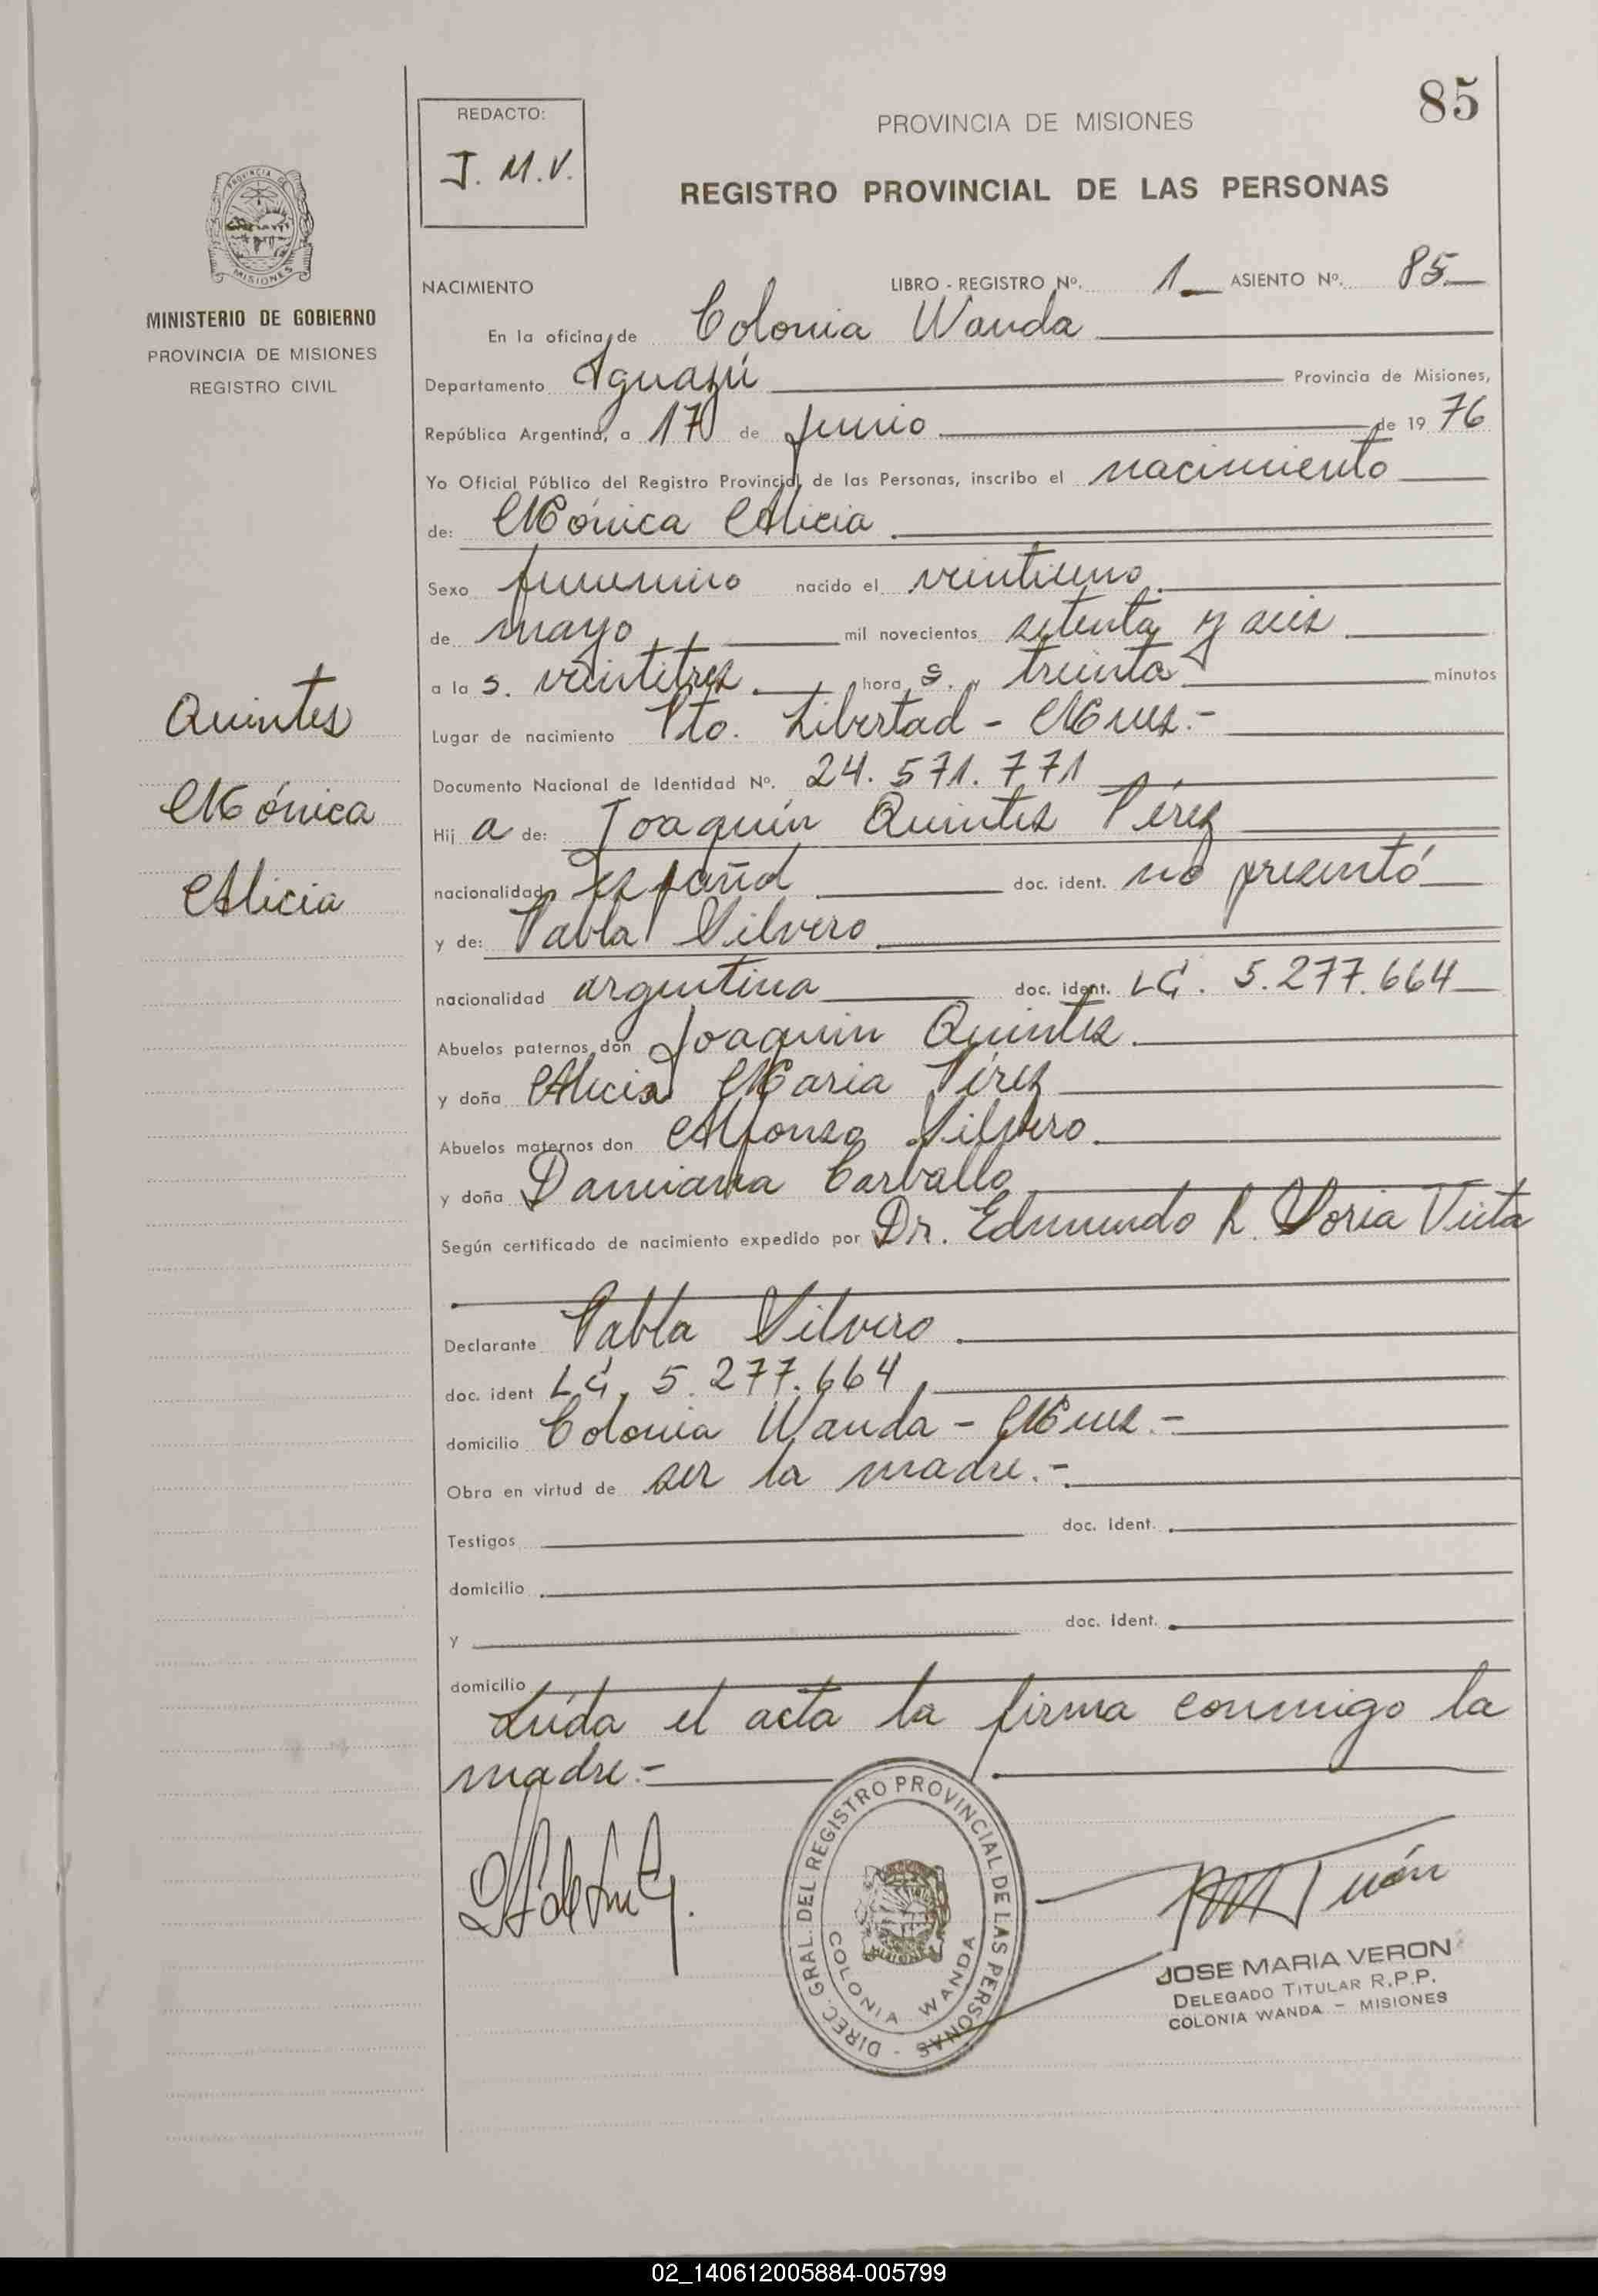 85
REDACTO:
J. M. V.
PROVINCIA DE MISIONES
REGISTRO PROVINCIAL DE LAS PERSONAS
PROVINCIA DE
MISIONES
MINISTERIO DE GOBIERNO
PROVINCIA DE MISIONES
REGISTRO CIVIL
NACIMIENTO LIBRO - REGISTRO Nº. 1 ASIENTO Nº. 85
En la oficina de Colonia Wanda
Departamento Iguazú Provincia de Misiones,
República Argentina, a 17 de junio de 19 76
Yo Oficial Público del Registro Provincial de las Personas, inscribo el nacimiento
de: Mónica Alicia
Sexo femenino nacido el veintiuno
de mayo mil novecientos setenta y seis
a la s. veintitres hora s. treinta minutos
Lugar de nacimiento Pto. Libertad - Mnes.-
Documento Nacional de Identidad Nº. 24.571.771
Quintes
Mónica
Alicia
Hij a de: Joaquín Quintes Pérez
nacionalidad español doc. ident. no presentó
y de: Pabla Silvero
nacionalidad argentina doc. ident. LC. 5.277.664
Abuelos paternos don Joaquin Quintes
y doña Alicia Maria Pérez
Abuelos maternos don Alfonso Silvero
y doña Damiana Carballo
Según certificado de nacimiento expedido por Dr. Edmundo R. Soria Vieta
Declarante Pabla Silvero
doc. ident LC. 5.277.664
domicilio Colonia Wanda - Mnes.-
Obra en virtud de ser la madre.-
Testigos doc. ident.
domicilio
y doc. ident.
domicilio
Leída el acta la firma conmigo la
madre.-
DIREC. GRAL. DEL REGISTRO PROVINCIAL DE LAS PERSONAS -
COLONIA WANDA
MISIONES
JOSE MARIA VERON
DELEGADO TITULAR R.P.P.
COLONIA WANDA - MISIONES
02_140612005884-005799